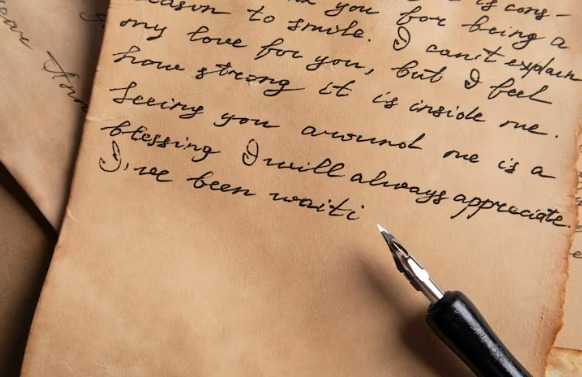 you for being a
reason to smile. I can't explain
my love for you, but I feel
how strong it is inside me.
Seeing you around me is a
blessing I will always appreciate.
I've been waiti